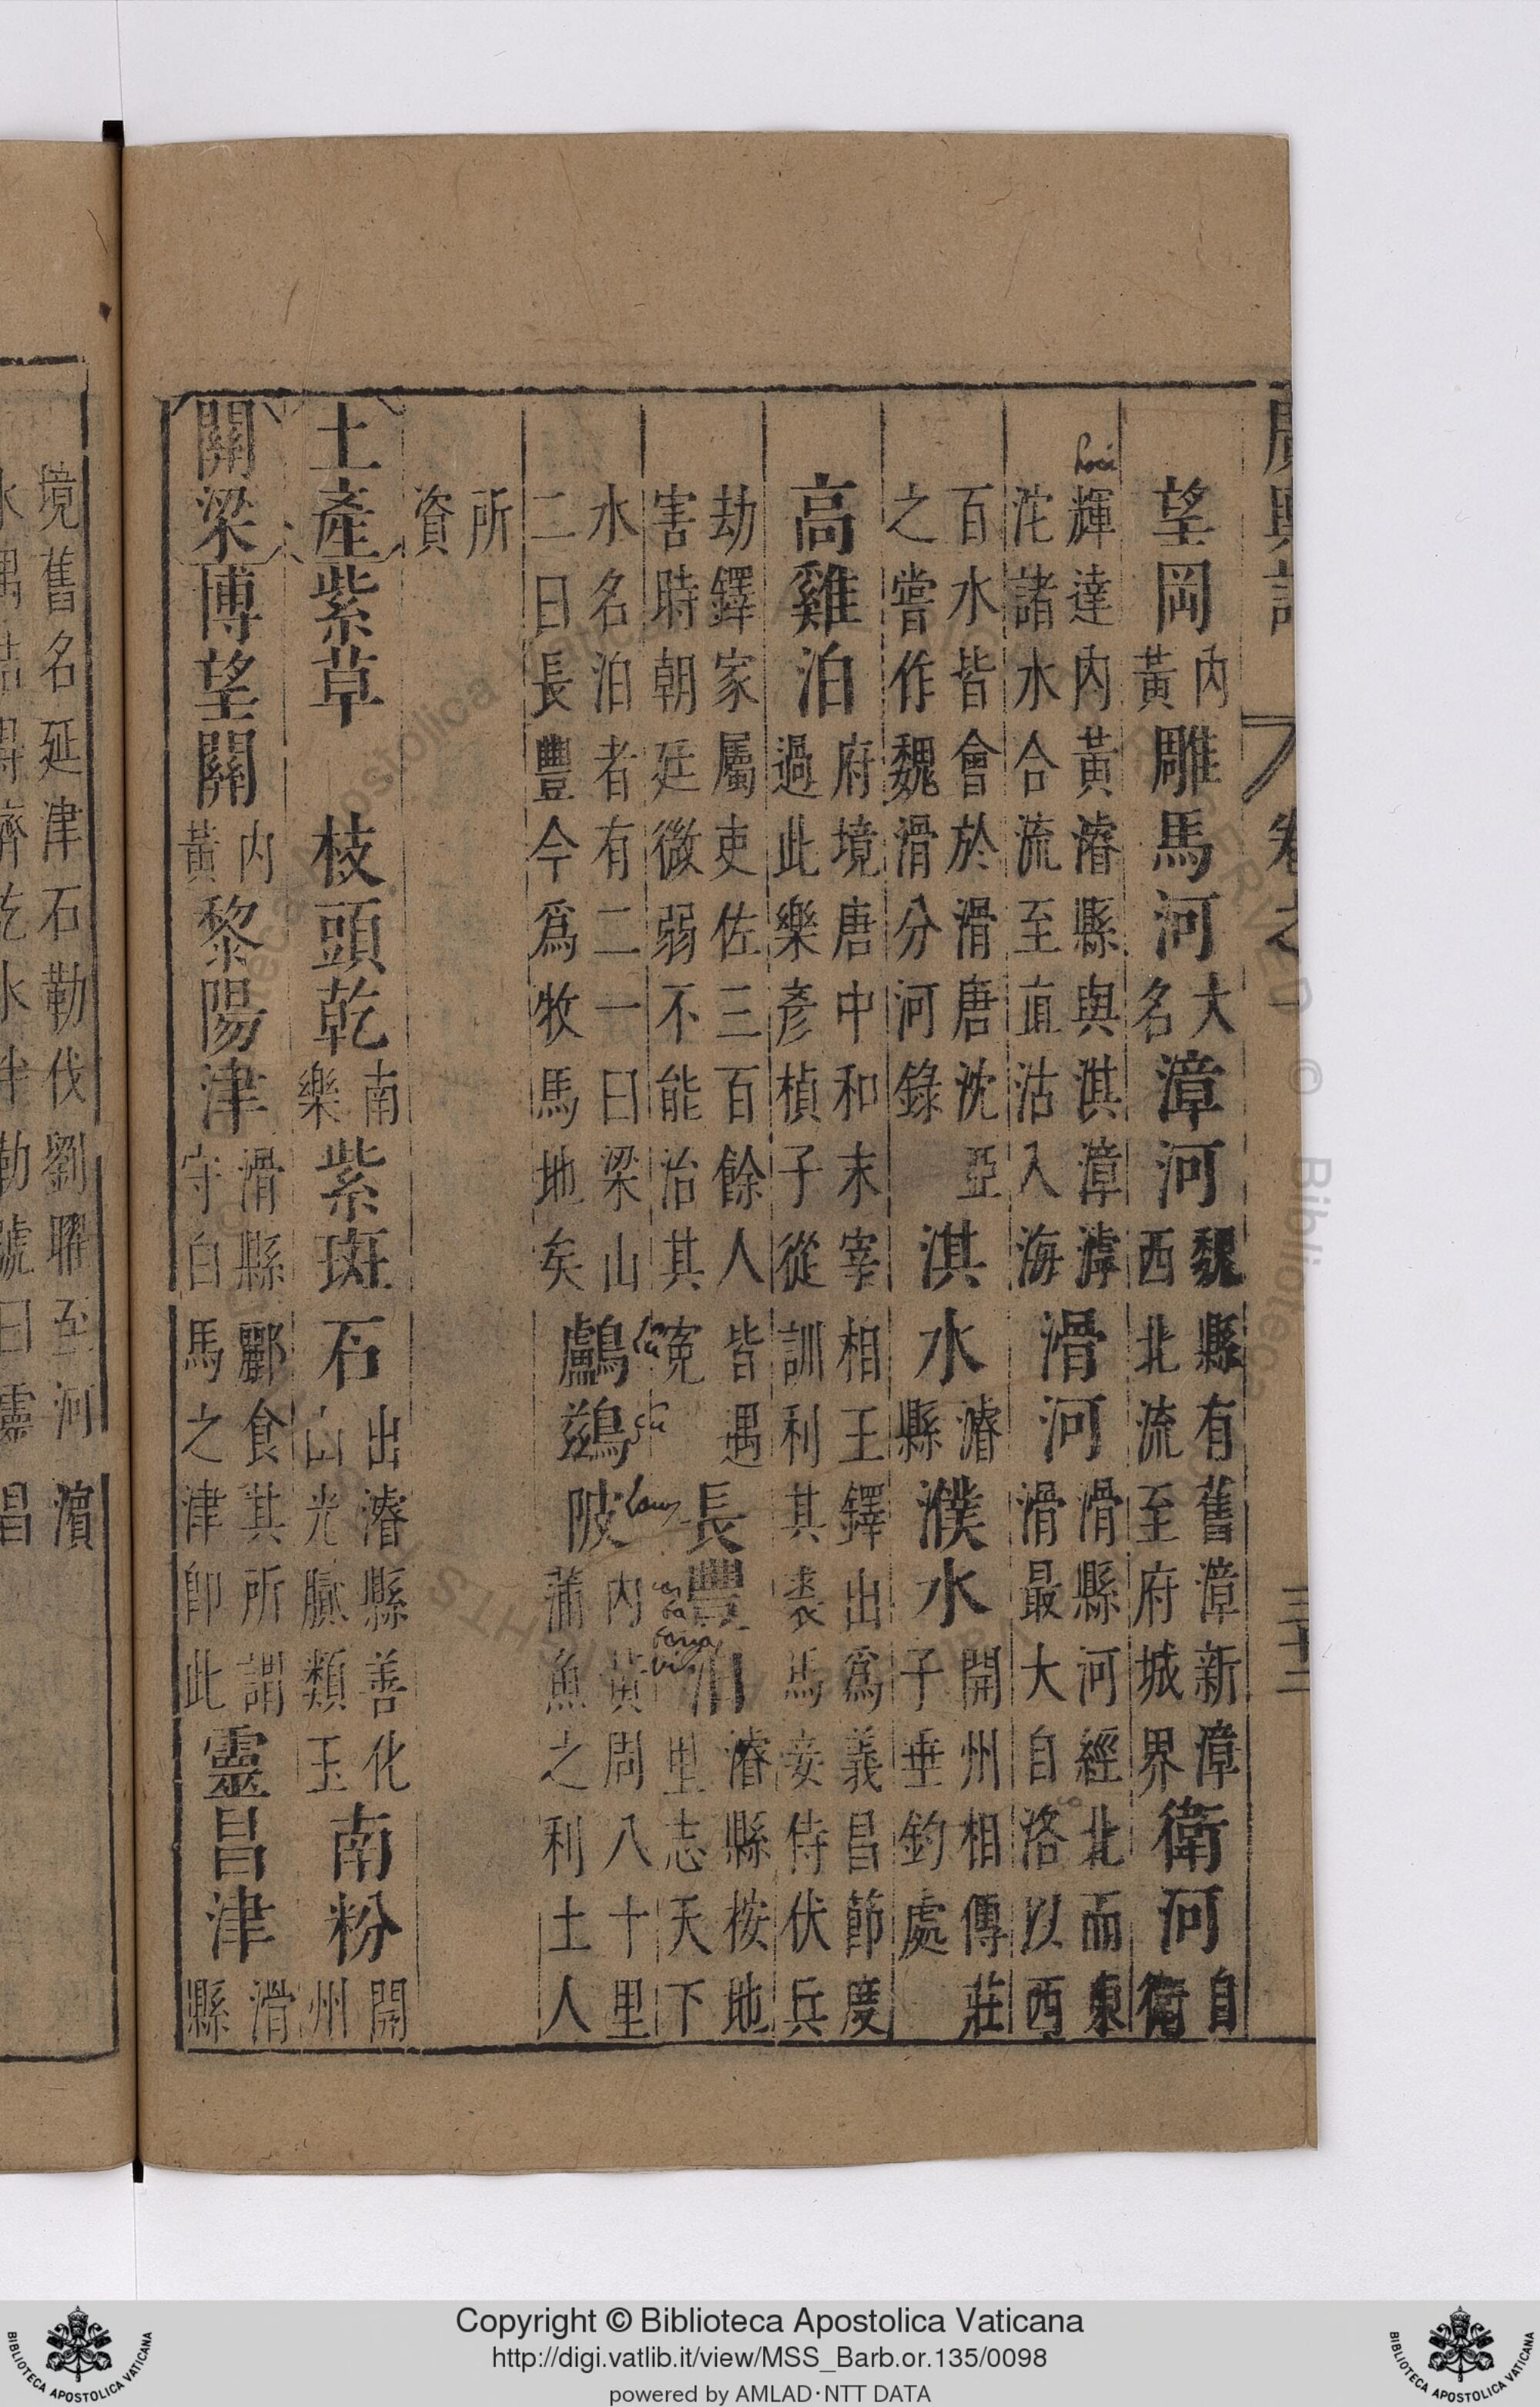 廣輿記 卷之 三十二
望岡內黃雕馬河大名漳河魏縣有舊漳新漳西北流至府城界衛河自衛
輝達內黃濬縣與淇漳滹沱諸水合流至直沽入海滑河滑縣河經北而東滑最大自洛以西
百水皆會於滑唐沈亞之嘗作魏滑分河錄淇水濬縣濮水開州相傳莊子垂釣處
高雞泊府境唐中和末宰相王鐸出爲義昌節度過此樂彥楨子從訓利其裘馬妾侍伏兵
劫鐸家屬吏佐三百餘人皆遇害時朝廷微弱不能治其寃長豐泊濬縣按地里志天下
水名泊者有二一曰梁山二曰長豐今爲牧馬地矣鸕鷀陂內黃周八十里蒲魚之利土人
所資
土產紫草 枝頭乾南樂紫斑石出濬縣善化山光膩類玉南粉開州
關梁博望關內黃黎陽津滑縣酈食其所謂守白馬之津卽此靈昌津滑縣
境舊名延津石勒伐劉曜至河濵
Copyright © Biblioteca Apostolica Vaticana
http://digi.vatlib.it/view/MSS_Barb.or.135/0098
powered by AMLAD·NTT DATA
BIBLIOTECA APOSTOLICA VATICANA
BIBLIOTECA APOSTOLICA VATICANA